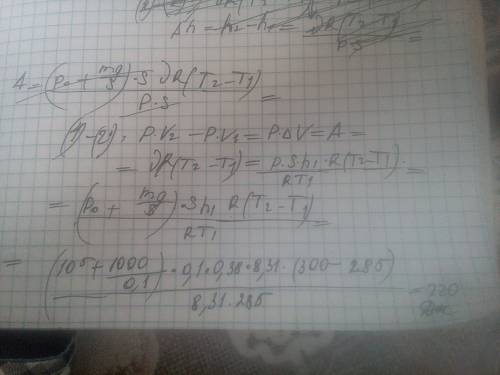 Δh = h₂ − h₁ = νR(T₂−T₁) / P·S
A = (p₀ + mg/S)·S νR(T₂−T₁) / P·S =
(1)-(2): P·V₂ − P·V₁ = PΔV = A =
= νR(T₂−T₁) = P·Sh₁·R(T₂−T₁) / RT₁ =
= (p₀ + mg/S)·Sh₁ R(T₂−T₁) / RT₁ =
= (10⁵ + 1000/0,1)·0,1·0,38·8,31·(300−285) / 8,31·285 = 220 Дж